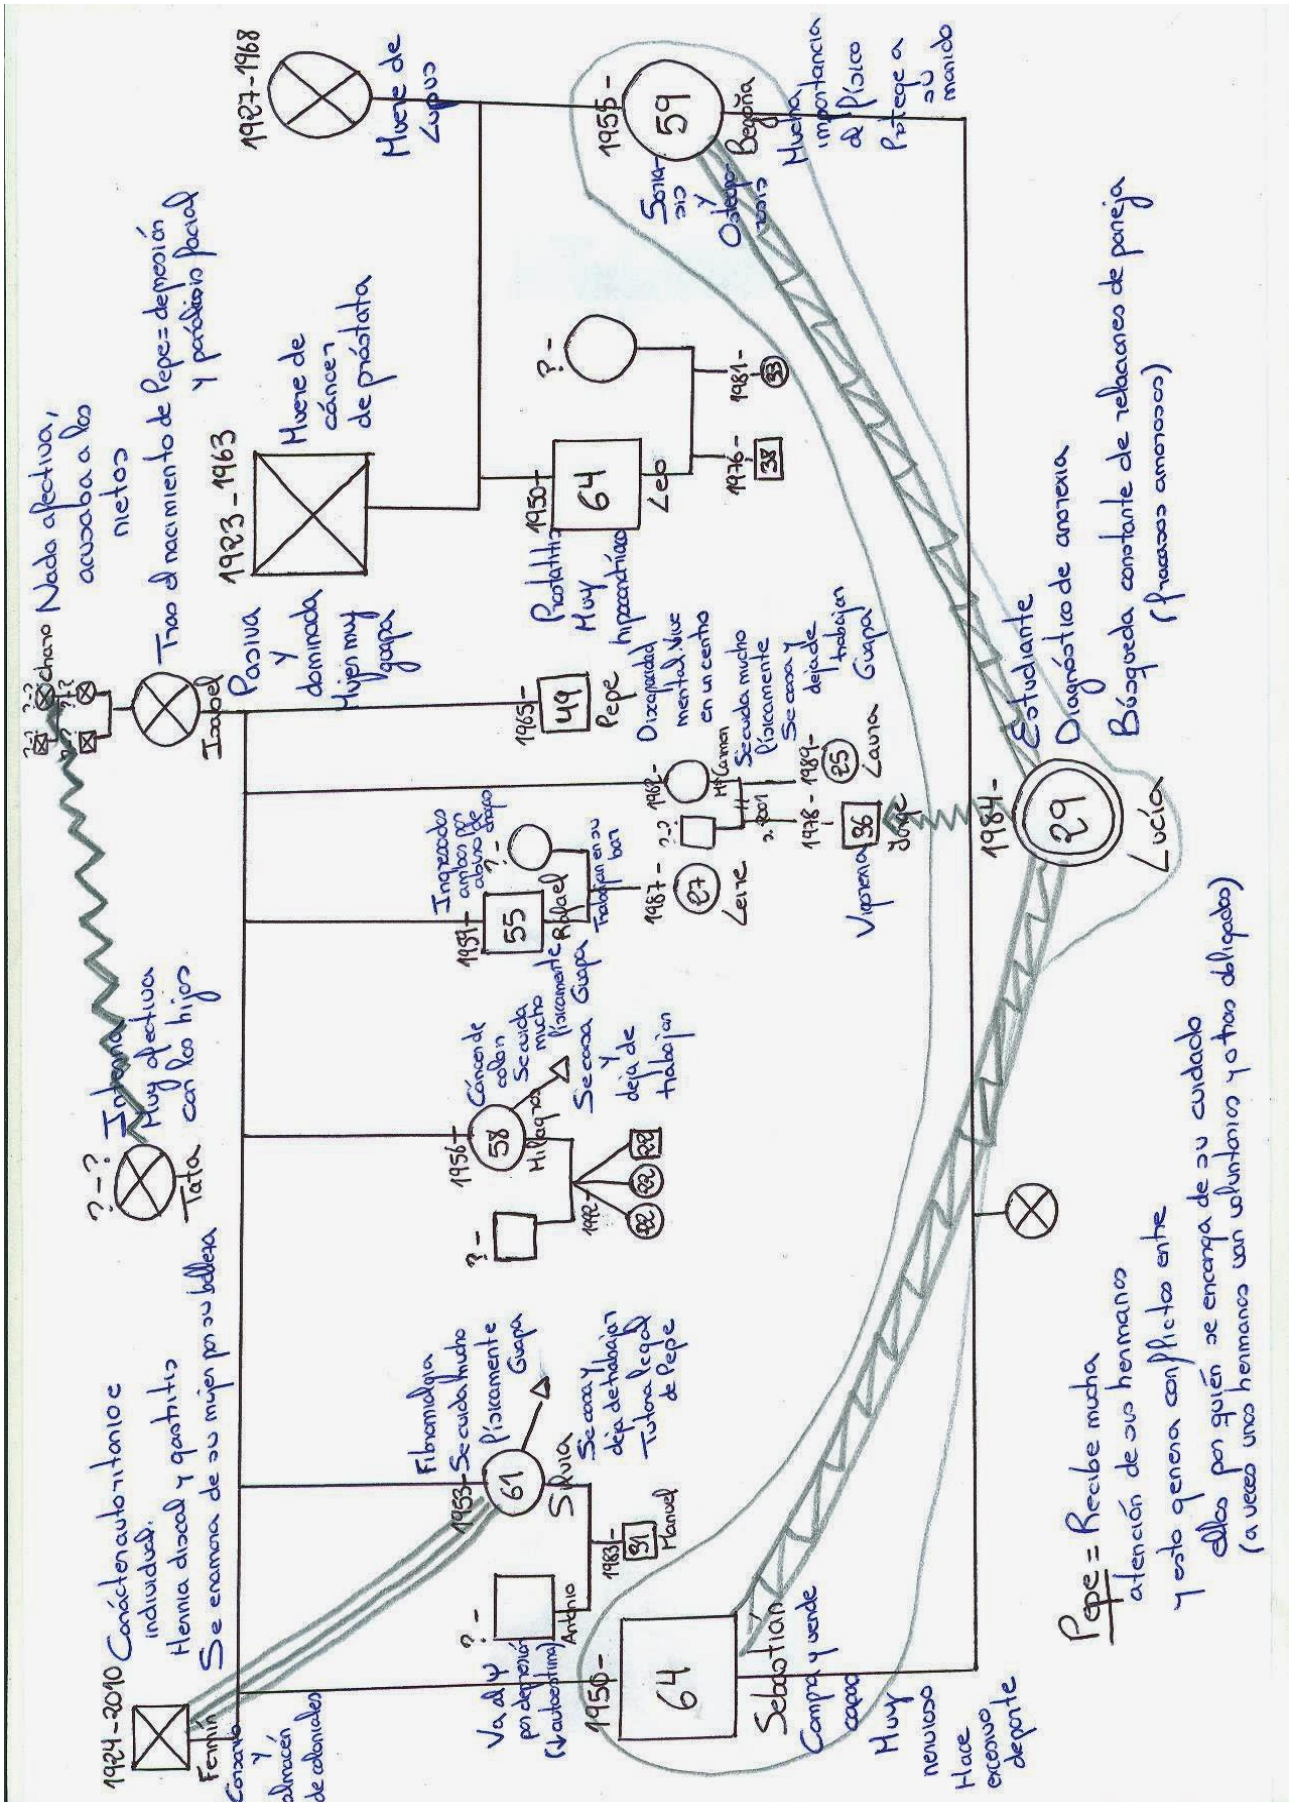 1924-2010
Carácter autoritario e
individual.
Hernia discal y gastritis
Se enamora de su mujer por su belleza
Fermín
y
almacén
de coloniales
?-?
Interna
Muy afectiva
con los hijos
Tata
?-?
?-?
charo
Nada afectiva,
acusaba a los
nietos
Tras el nacimiento de Pepe = depresión
y parálisis facial
Isabel
Pasiva
y
dominada
Mujer muy
guapa
1923-1963
Muere de
cáncer
de próstata
1927-1968
Muere de
Lupus
Va al Ψ
por depresión
(↓autoestima)
?-
Antonio
1953-
Fibromialgia
Se cuida mucho
físicamente
Guapa
61
Silvia
Se casa y
deja de trabajar
Tutora legal
de Pepe
1983-
31
Manuel
?-
1956-
58
Milagros
Cáncer de
colon
Se cuida
mucho
físicamente
Guapa
Se casa
y
deja de
trabajar
1992-
22
22
22
1959-
Ingresados
ambos por
abuso de
drogas
55
Rafael
?-
Trabajan en su
bar
1987-
27
Leire
1962-
Mª Carmen
?-?
s. 2001
Se cuida mucho
físicamente
Se casa y
deja de
trabajar
Guapa
1978-
36
Jorge
Vigorexia
1989-
25
Laura
1965-
49
Pepe
Discapacidad
mental. Vive
en un centro
1950-
Prostatitis
Muy
hipocondríaco
64
Leo
?-
1976-
38
1981-
33
1955-
59
Begoña
Soria-
sis
y
Osteopo-
rosis
Mucha
importancia
al físico
Protege a
su
marido
1950-
64
Sebastián
Compra y vende
Muy
nervioso
Hace
excesivo
deporte
1984-
29
Lucía
Estudiante
Diagnóstico de anorexia
Búsqueda constante de relaciones de pareja
(fracasos amorosos)
Pepe = Recibe mucha
atención de sus hermanos
y esto genera conflictos entre
ellos por quién se encarga de su cuidado
(a veces unos hermanos van voluntarios y otros obligados)